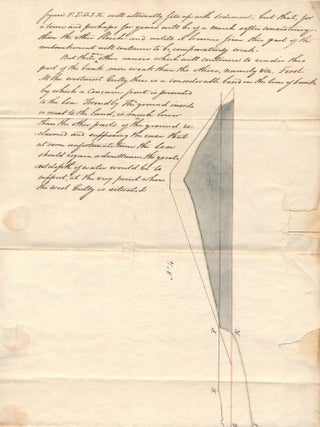 figure F.E.G.I.K. will ultimately fill up with sediment, but that, for
a time and perhaps for years will be of a much softer consistency
than the other Slack and until it becomes firm this part of the
embankment will continue to be comparatively weak.
But there other causes which will continue to render this
part of the bank more weak than the others, namely viz. First
At the westmost Gulley there is a considerable bend in the line of bank
by which a concave front is presented
to the Sea. Secondly the ground inside
or next to the land, is much lower
than the other parts of the ground re-
claimed and supposing the case that
at some unfortunate time the Sea
should again inundate the ground
depth of water would be to
support, at the very point where
the west Gulley is situated
No. 4